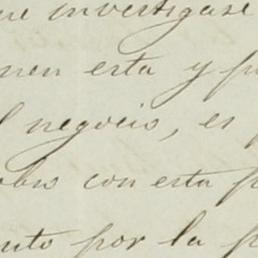 ue investigase
nen esta y p
l negocio, es
obro con esta p
uto por la p